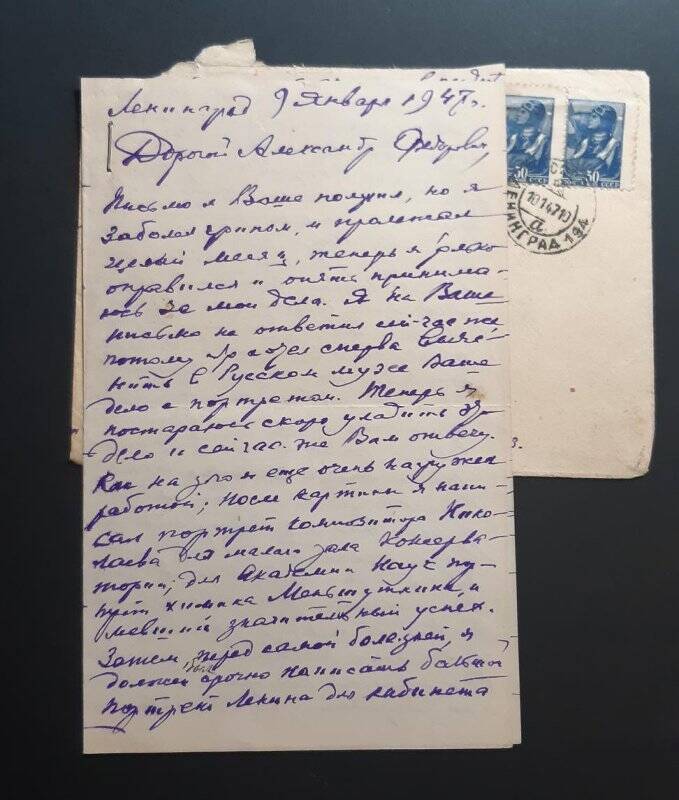 Ленинград 9 Января 1947 г.
Дорогой Александр Федорович,
Письмо я Ваше получил, но я
заболел грипом, и пролежал
целый месяц, теперь я только
оправился и опять принима-
юсь за мои дела. Я на Ваше
письмо не ответил сей-час же
потому хотел сперва выяс-
нить в Русском музее Ваше
дело с портретом. Теперь я
постараюсь скоро уладить это
дело и сейчас-же Вам отвечу.
на зло я еще очень нагружен
работой; после картины я напи-
сал портрет композитора Нико-
лаева для малого зала Консерва-
тории; для Академии Наук пор-
трет химика Меншуткина, и
мевший значительный успех.
Затем, перед самой болезнью, я
должен был срочно написать большой
портрет Ленина для кабинета
30 30
ПОЧТА СССР
ЛЕНИНГРАД 194
10147 10
а
3.